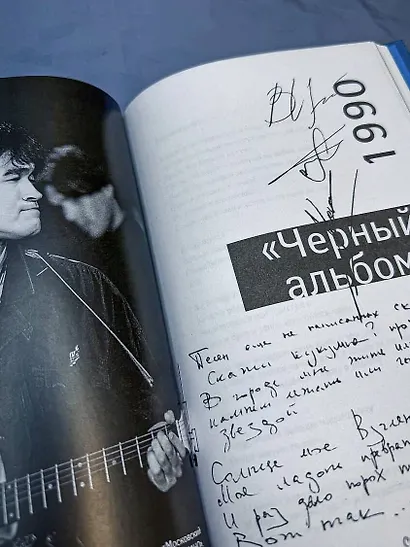 1990
«Черный
альбом
Песен еще не написанных ск
Скажи кукушка? про
В городе мне жить ил
камнем лежать или го
звездой
Солнце мое Взглян
Моя ладонь преврат
И раз дало порох т
Вот так...
Московский